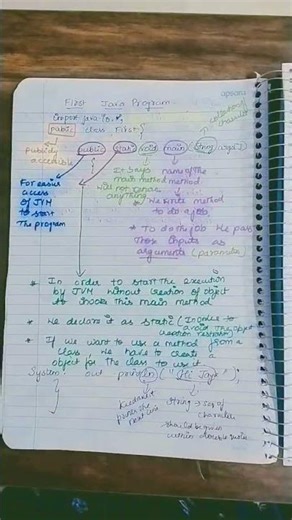 First Java Program
import java.io.*;
public class First {
public static void main (String args[])
publicly accessible
For easier access of JVM to start the program
It says main method will not
anything
name of the method
* We write method to do a job
* To do the job we pass those inputs as arguments (parameter)
* In order to start the execution
by JVM without creation of object
to this main method
* We declare it as static (In order to
avoid the object
* If we want to use a method from a
class, we have to create a
object for the class to use it.
System. out println ("Hi Jaya");
the next line
String → of
character
should be given
within double